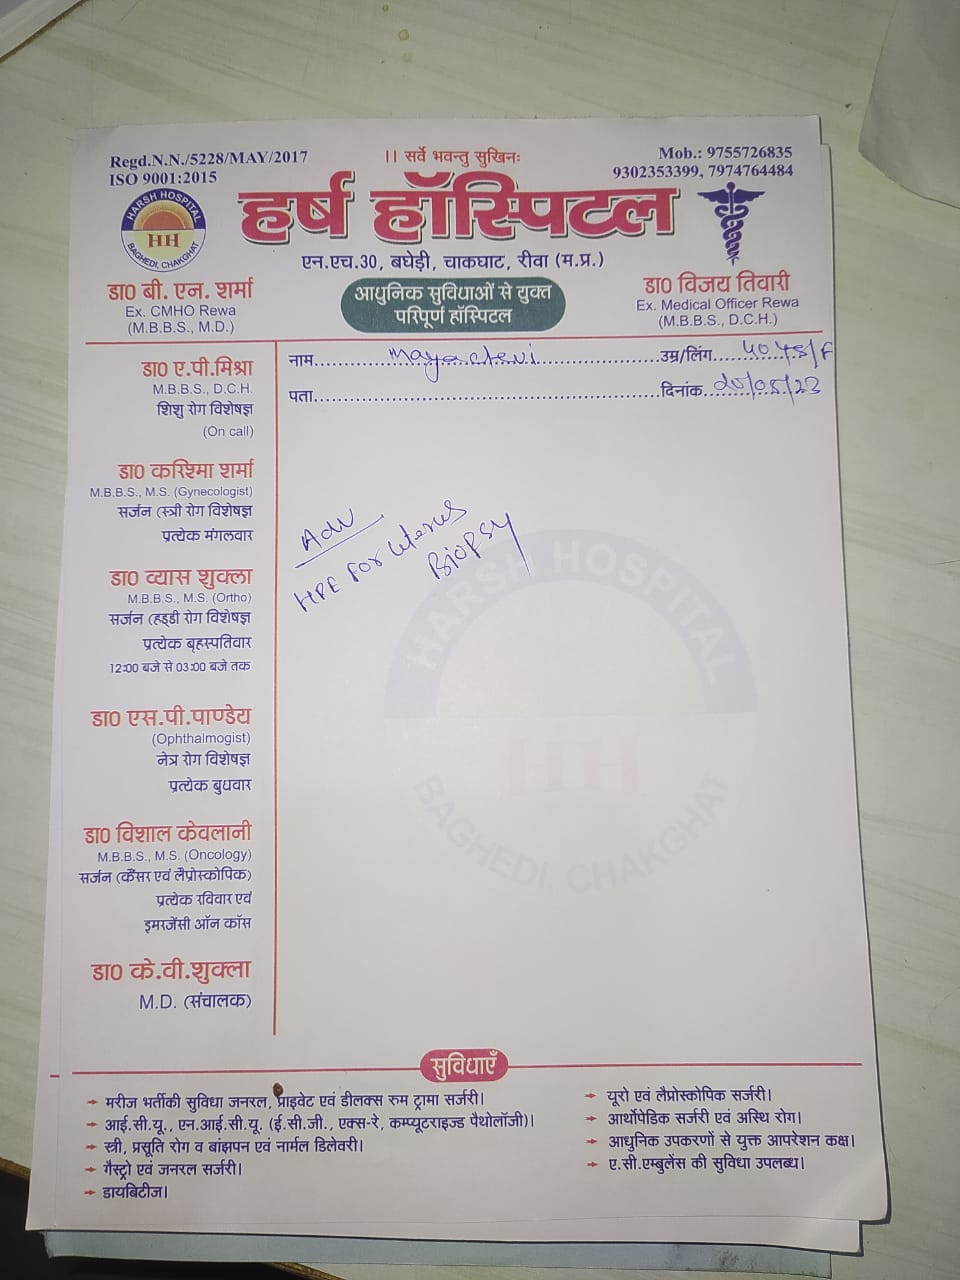 Regd.N.N./5228/MAY/2017
ISO 9001:2015
।। सर्वे भवन्तु सुखिनः
Mob.: 9755726835
9302353399, 7974764484
HARSH HOSPITAL
HH
BAGHEDI, CHAKGHAT
हर्ष हॉस्पिटल
एन.एच.30, बघेड़ी, चाकघाट, रीवा (म.प्र.)
आधुनिक सुविधाओं से युक्त
परिपूर्ण हॉस्पिटल
डा0 बी. एन. शर्मा
Ex. CMHO Rewa
(M.B.B.S., M.D.)
डा0 विजय तिवारी
Ex. Medical Officer Rewa
(M.B.B.S., D.C.H.)
नाम Maya devi उम्र/लिंग 40 YS/F
पता दिनांक 20/05/23
डा0 ए.पी.मिश्रा
M.B.B.S., D.C.H.
शिशु रोग विशेषज्ञ
(On call)
डा0 करिश्मा शर्मा
M.B.B.S., M.S. (Gynecologist)
सर्जन (स्त्री रोग विशेषज्ञ
प्रत्येक मंगलवार
डा0 व्यास शुक्ला
M.B.B.S., M.S. (Ortho)
सर्जन (हड्डी रोग विशेषज्ञ
प्रत्येक बृहस्पतिवार
12:00 बजे से 03:00 बजे तक
डा0 एस.पी.पाण्डेय
(Ophthalmogist)
नेत्र रोग विशेषज्ञ
प्रत्येक बुधवार
डा0 विशाल केवलानी
M.B.B.S., M.S. (Oncology)
सर्जन (कैंसर एवं लैप्रोस्कोपिक)
प्रत्येक रविवार एवं
इमरजेंसी ऑन कॉस
डा0 के.वी.शुक्ला
M.D. (संचालक)
Adv
HPE FOR Uterus
Biopsy
HARSH HOSPITAL
HH
BAGHEDI, CHAKGHAT
सुविधाएँ
मरीज भर्तीकी सुविधा जनरल, प्राइवेट एवं डीलक्स रुम ट्रामा सर्जरी।
आई.सी.यू., एन.आई.सी.यू. (ई.सी.जी., एक्स-रे, कम्प्यूटराइज्ड पैथोलॉजी)।
स्त्री, प्रसूति रोग व बांझपन एवं नार्मल डिलेवरी।
गैस्ट्रो एवं जनरल सर्जरी।
डायबिटीज।
यूरो एवं लैप्रोस्कोपिक सर्जरी।
आर्थोपेडिक सर्जरी एवं अस्थि रोग।
आधुनिक उपकरणों से युक्त आपरेशन कक्ष।
ए.सी.एम्बुलेंस की सुविधा उपलब्ध।